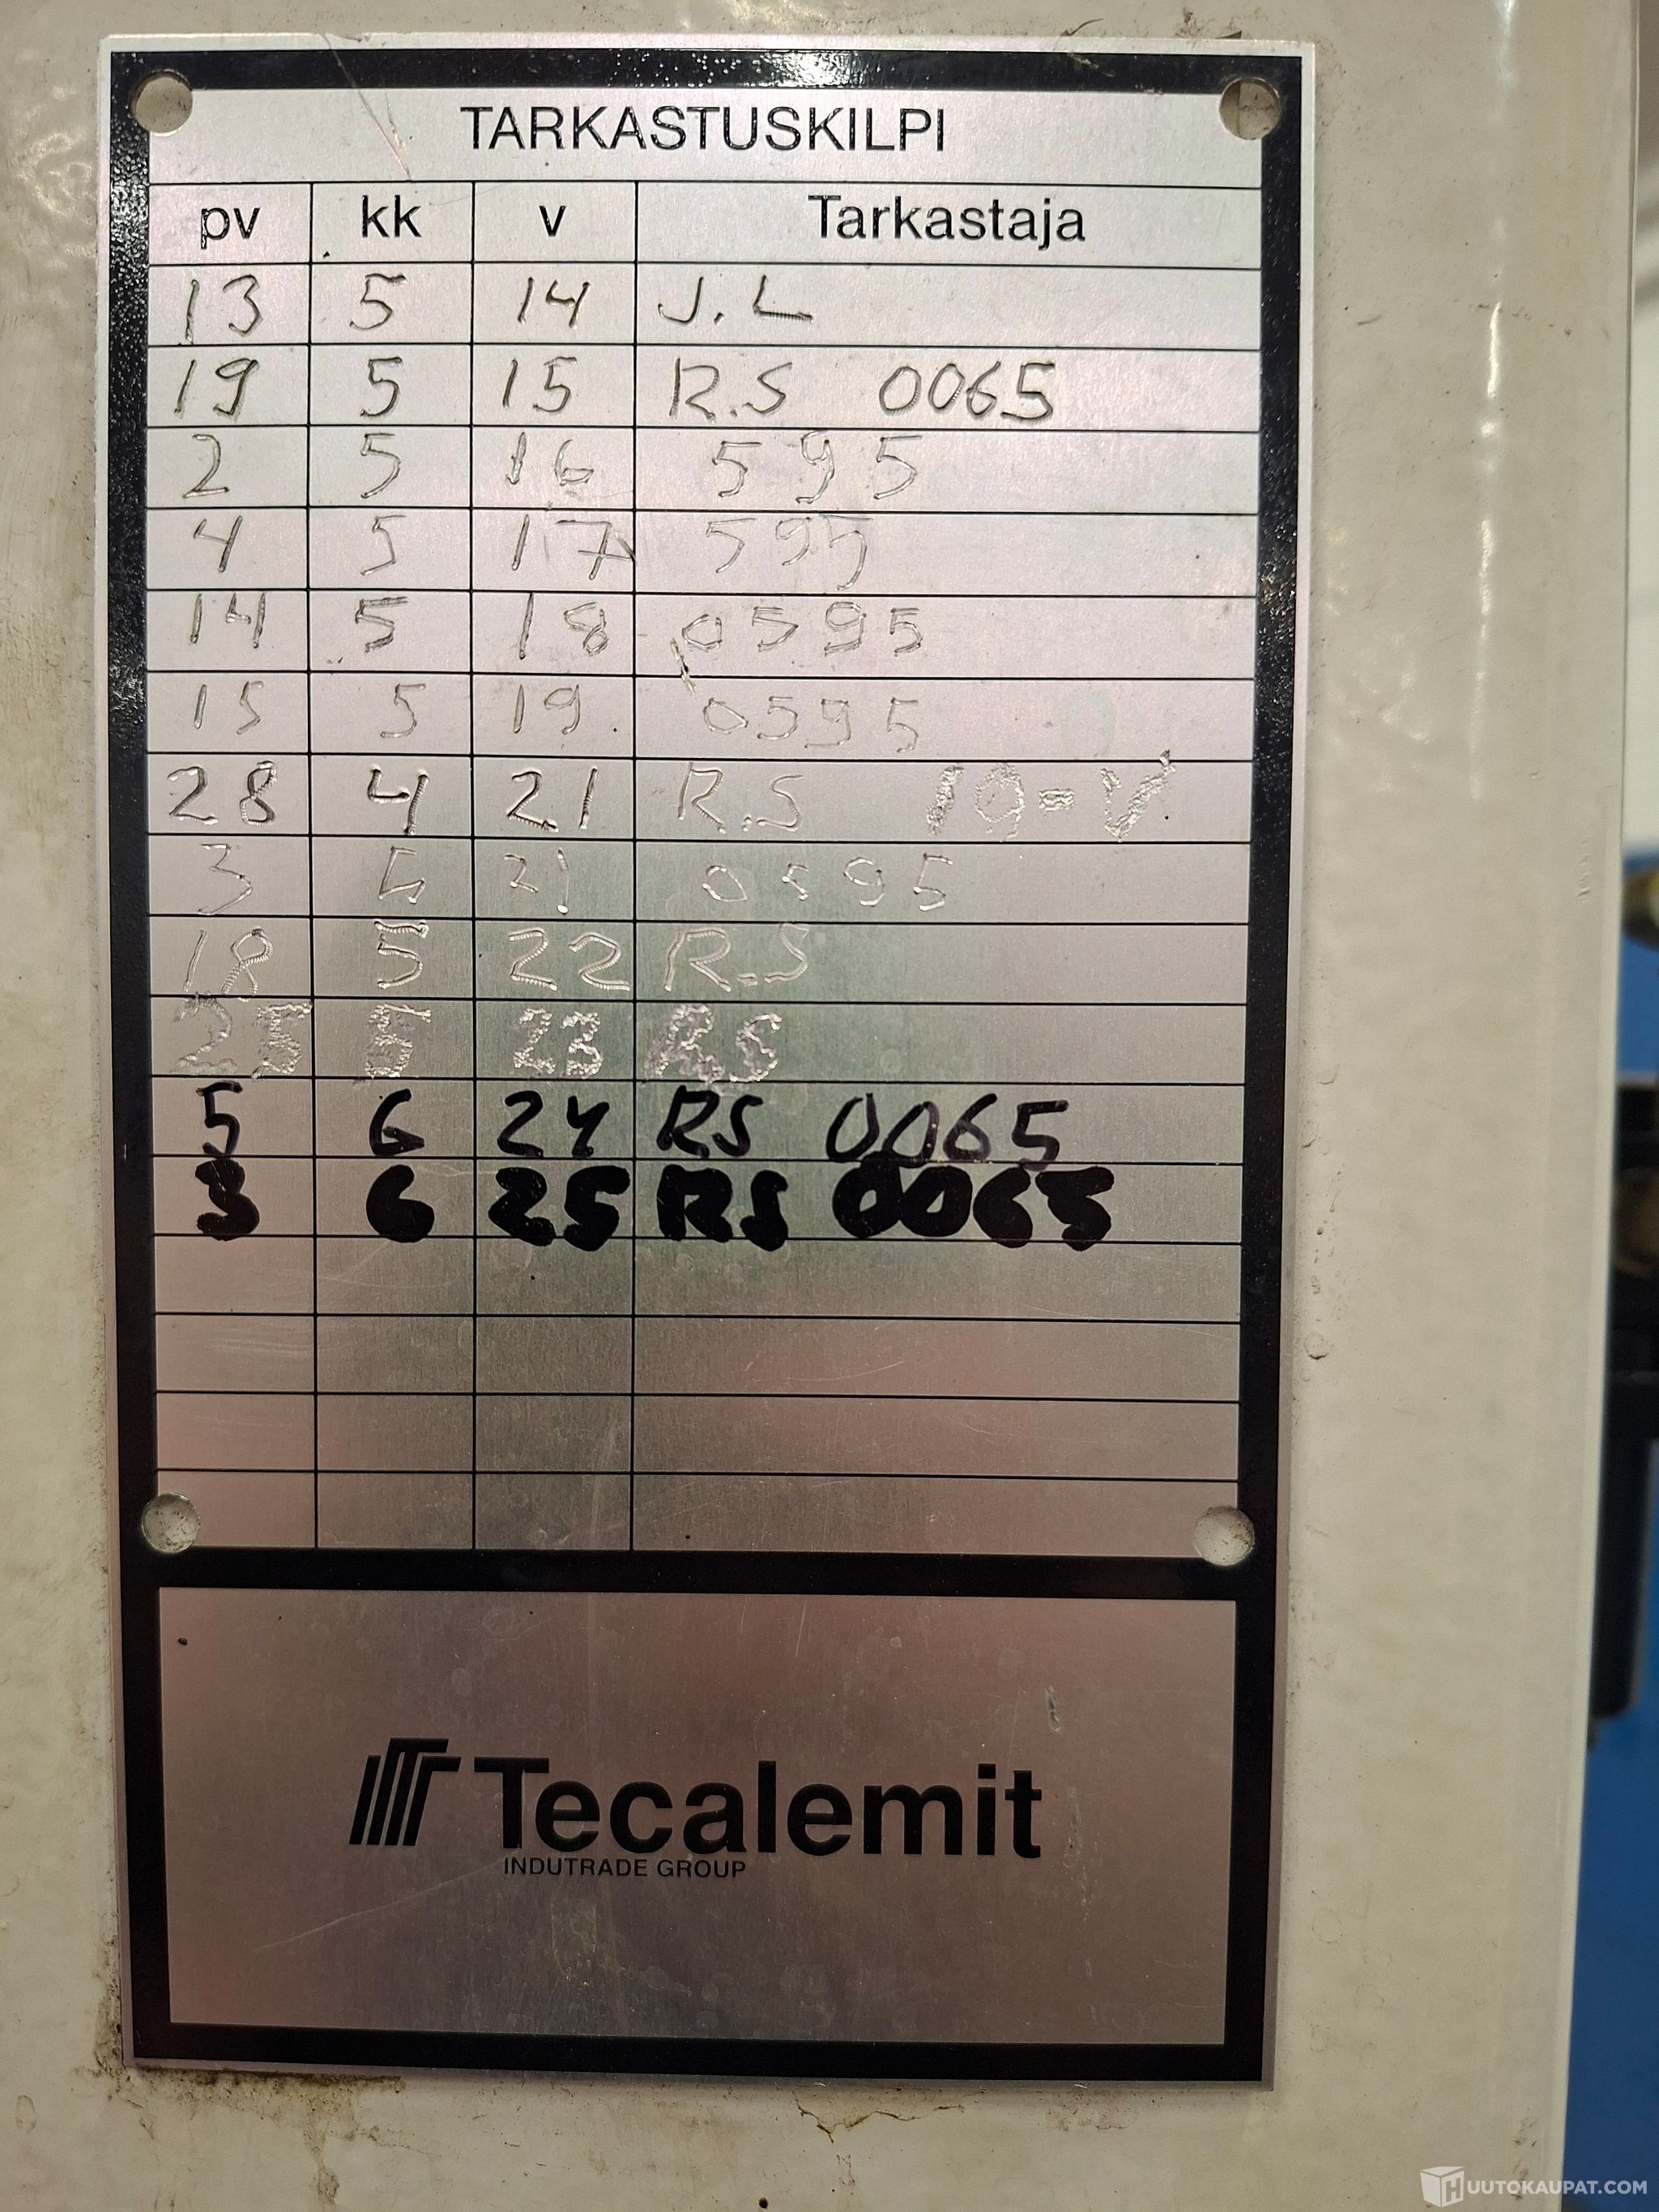 TARKASTUSKILPI
pv kk v Tarkastaja
13 5 14 J.L
19 5 15 R.S 0065
2 5 16 595
4 5 17 595
14 5 18 0595
15 5 19 0595
28 4 21 R.S 19-V
3 5 21 0595
18 5 22 R.S
25 5 23 RS
5 6 24 RS 0065
3 6 25 RS 0065
Tecalemit
INDUTRADE GROUP
HUUTOKAUPAT.COM